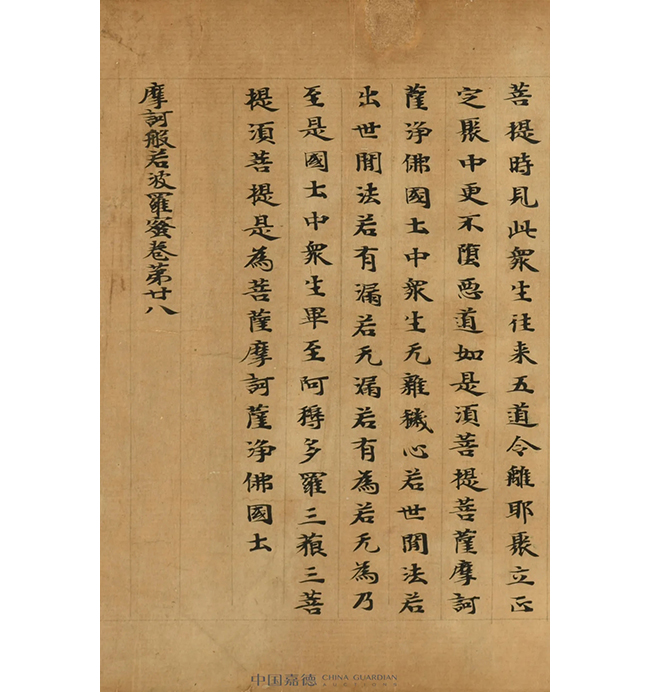 菩提時見此衆生往来五道令離耶聚立正
定聚中更不堕惡道如是湏菩提菩薩摩訶
薩淨佛國土中衆生无雜穢心若世間法若
出世間法若有漏若无漏若有為若无為乃
至是國土中衆生畢至阿耨多羅三藐三菩
提湏菩提是為菩薩摩訶薩淨佛國土
摩訶般若波羅蜜卷第廿八
中国嘉德 CHINA GUARDIAN